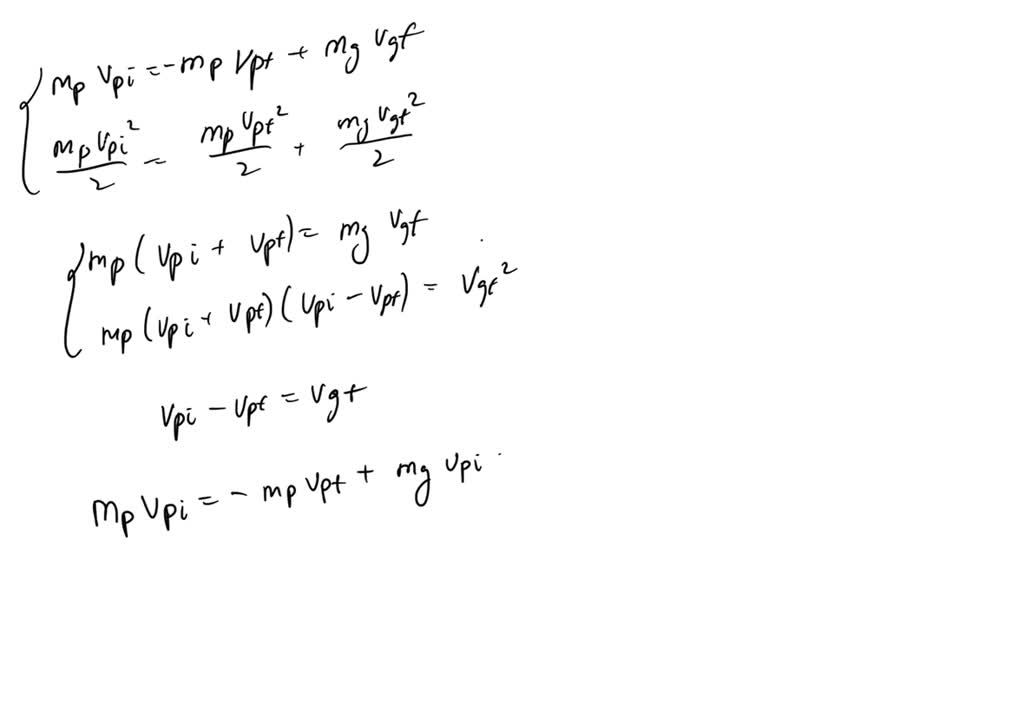 mp vpi = - mp vpf + mg vgf
mp vpi²/2 = mp vpf²/2 + mg vgf²/2
mp (vpi + vpf) = mg vgf
mp (vpi + vpf) (vpi - vpf) = vgf²
vpi - vpf = vgf
mp vpi = - mp vpf + mg vpi